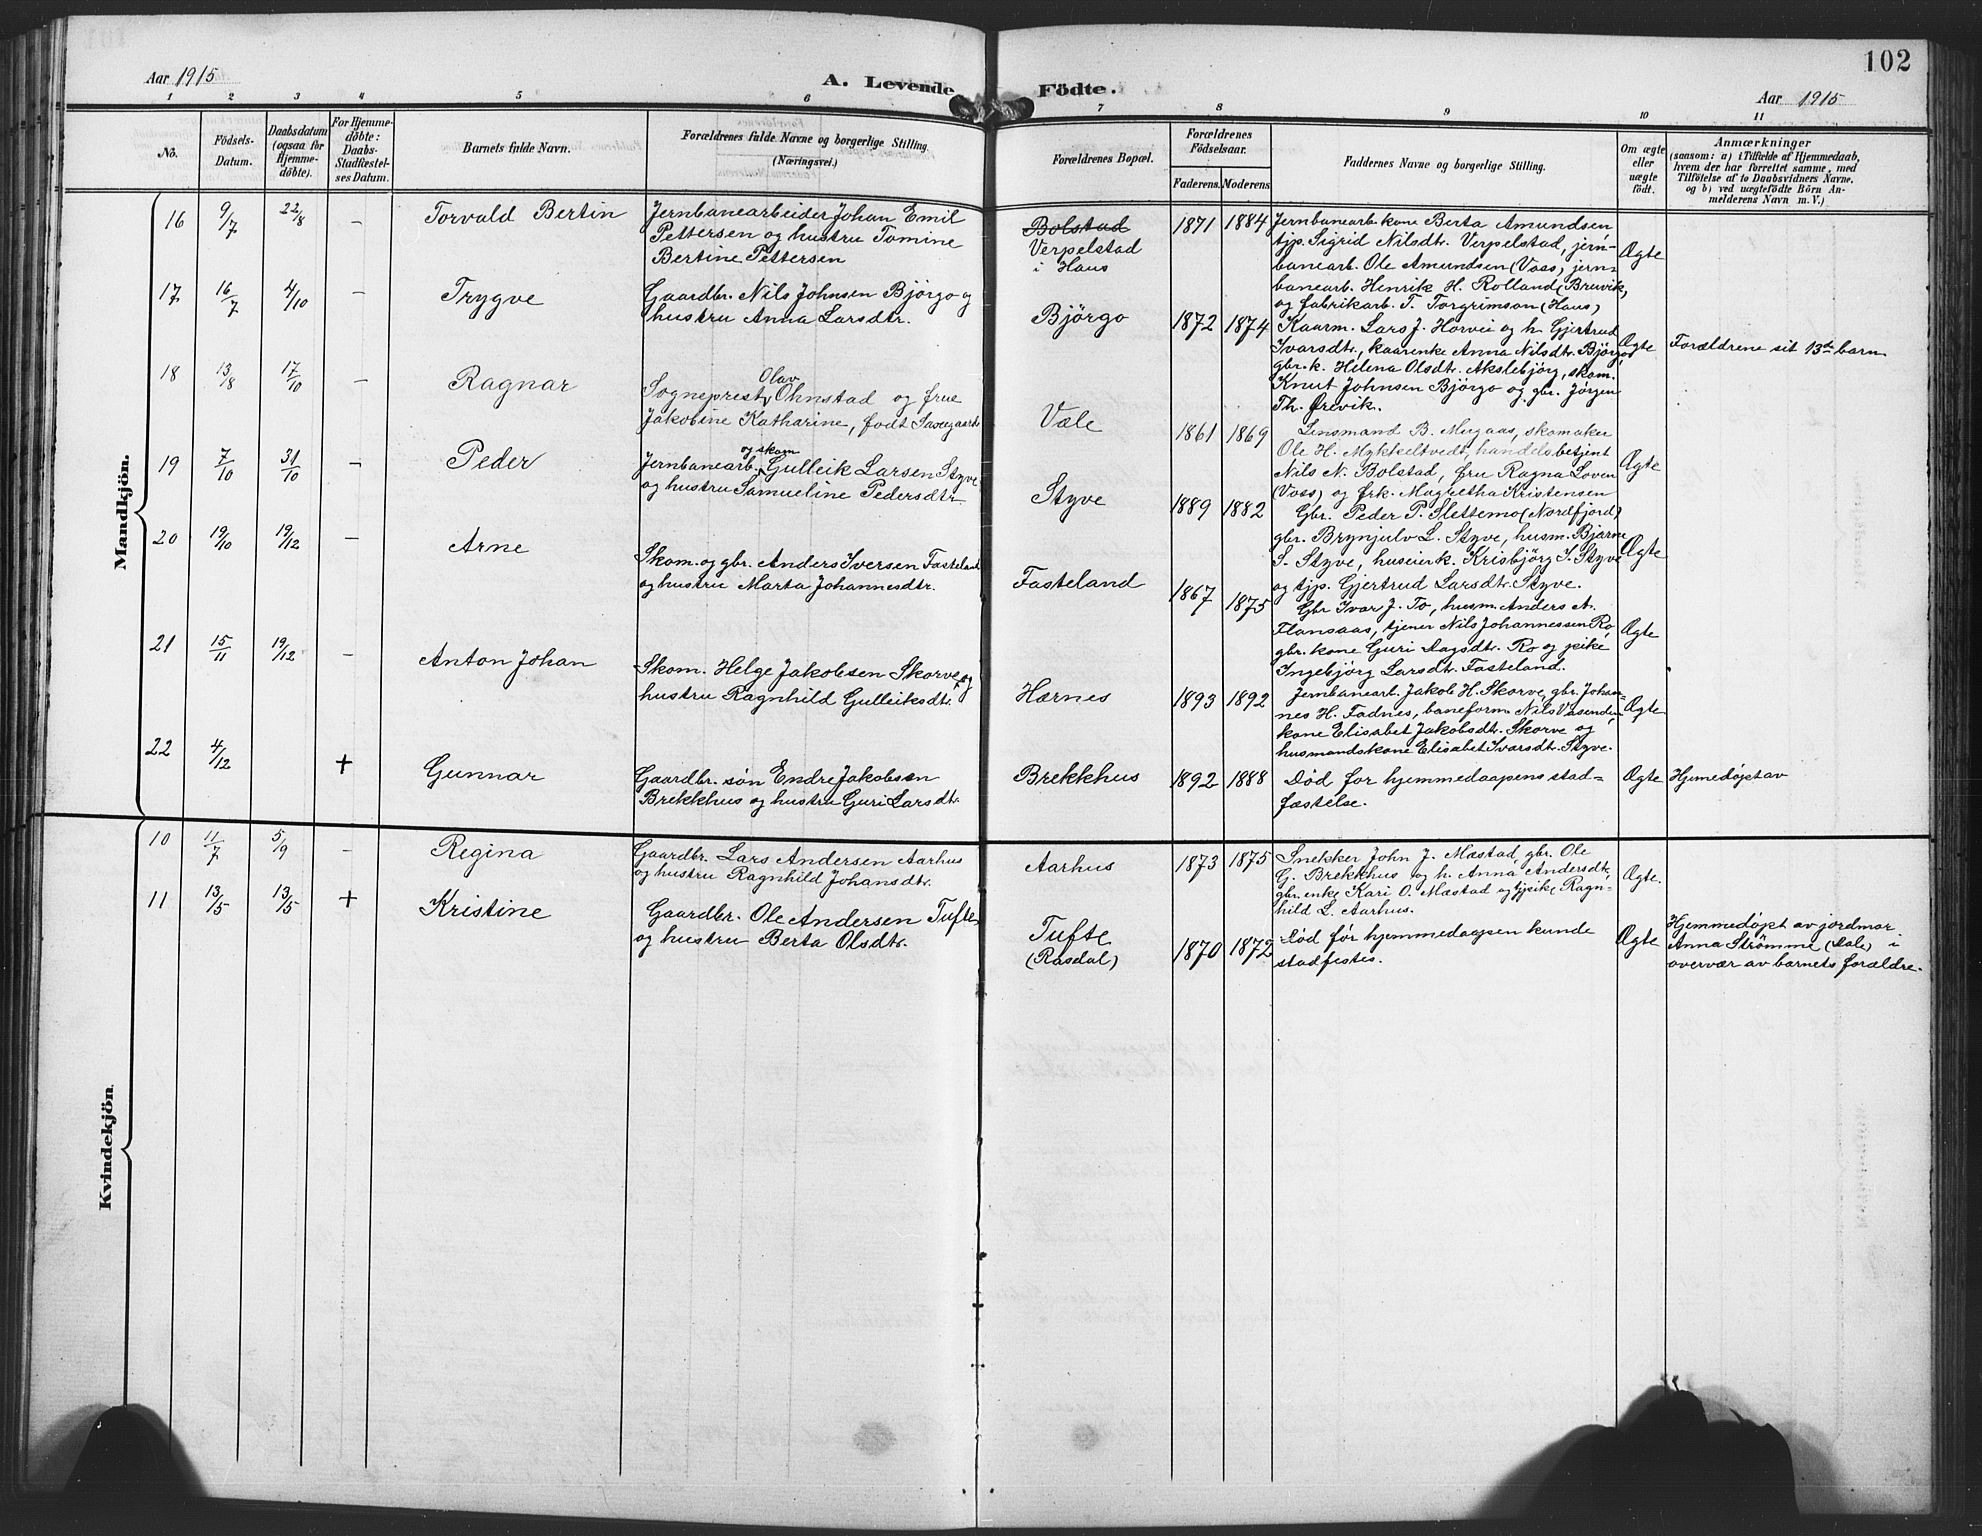 102
Aar 1915
A. Levende
Födte.
Aar 1915
1 2 3 4 5 6 7 8 9 10 11
No.
Födsels-
Datum.
Daabsdatum
(ogsaa for
Hjemme-
döbte).
For Hjemme-
döbte:
Daabs-
Stadfæstel-
ses Datum.
Barnets fulde Navn.
Forældrenes fulde Navne og borgerlige Stilling.
(Næringsvei.)
Forældrenes Bopæl.
Forældrenes
Födselsaar.
Faderens. Moderens.
Faddernes Navne og borgerlige Stilling.
Om ægte
eller
uægte
födt.
Anmærkninger
(saasom: a) i Tilfælde af Hjemmedaab,
hvem der har forrettet samme, med
Tilföielse af to Daabsvidners Navne.
og b) ved uægtefödte Börn An-
melderens Navn m. V.)
Mandkjön.
16 9/7 22/8 – Torvald Bertin
Jernbanearbeider Johan Emil
Pettersen og hustru Tomine
Bertine Pettersen
Bolstad
Verpelstad
i Haus
1871 1884
Jernbanearb. kone Berta Amundsen
tjp. Sigrid Nilsdtr. Verpelstad, jern-
banearb. Ole Amundsen (Voss) jern-
banearb. Henrik H. Rolland (Bruvik,
og fabrikarb. T. Torgrimson (Haus)
Ægte
17 16/7 4/10 – Trygve
Gaardbr. Nils Johnsen Bjørgo og
hustru Anna Larsdtr.
Bjørgo
1872 1874
Kaarm. Lars J. Horvei og h. Gjertrud
Ivarsdtr., kaarenke Anna Nilsdtr. Bjørgo,
gbr. k. Helena Olsdtr. Akslebjørg, skom.
Knut Johnsen Bjørgo og gbr. Jørgen
Th. Ørevik.
Ægte
Forældrene sit 13de barn
18 13/8 17/10 – Ragnar
Olav
Sogneprest Ohnstad og frue
Jakobine Katharine, født
Væle
1861 1869
Lensmand B. Mugaas, skomaker
Ole H. Mykkeltvedt, handelsbetjent
Nils N. Bolstad, fru Ragna Loven
(Voss) og frk. Magretha Kristensen
Ægte
19 7/10 31/10 – Peder
og skom
Jernbanearb. Gulleik Larsen Styve
og hustru Samueline Pedersdtr.
Styve
1889 1882
Gbr. Peder P. Slettemo (Nordfjord)
gbr. Brynjulv L. Styve, husm. Bjarne
S. Styve, huseierk. Krisbjørg I. Styve
og tjp. Gjertrud Larsdtr. Styve.
Ægte
20 19/10 19/12 – Arne
Skom. og gbr. Anders Iversen Fasteland
og hustru Marta Johannesdtr.
Fasteland
1867 1875
Gbr Ivar J. To, husm. Anders A.
Flansaas, tjener Nils Johannessen Ro,
gbr. kone Guri Dagsdtr. Ro og pike
Ingebjørg Larsdtr. Fasteland.
Ægte
21 15/11 19/12 – Anton Johan
Skom. Helge Jakobsen Skorve og
hustru Ragnhild Gulleiksdtr.
Hærnes
1893 1892
Jernbanearb. Jakob H. Skorve, gbr. Johan-
nes H. Fadnes, baneform. Nils Vasenden,
kone Elisabet Jakobsdtr. Skorve og
husmandskone Elisabet Ivarsdtr. Styve.
Ægte
22 4/12 + Gunnar
Gaardbr. søn Endre Jakobsen
Brekkhus og hustru Guri Larsdtr.
Brekkhus
1892 1888
Død før hjemmedaapens stad-
fæstelse.
Ægte
Hjemedøpt av
Kvindekjön.
10 11/7 5/9 – Regina
Gaardbr. Lars Andersen Aarhus
og hustru Ragnhild Johansdtr.
Aarhus
1873 1875
Snekker John J. Mæstad, gbr. Ole
G. Brekkhus og h. Anna Andersdtr,
gbr. enke Kari O. Mæstad og tj.pike Ragn-
hild L. Aarhus.
Ægte.
11 13/5 13/5 + Kristine
Gaardbr. Ole Andersen Tufte
og hustru Berta Olsdtr.
Tufte
(Rasdal)
1870 1872
Død før hjemmedaapen kunde
stadfestes.
Ægte
Hjemmedøpt av jordmor
Anna Strömme (Dale) i
overvær av barnets forældre.